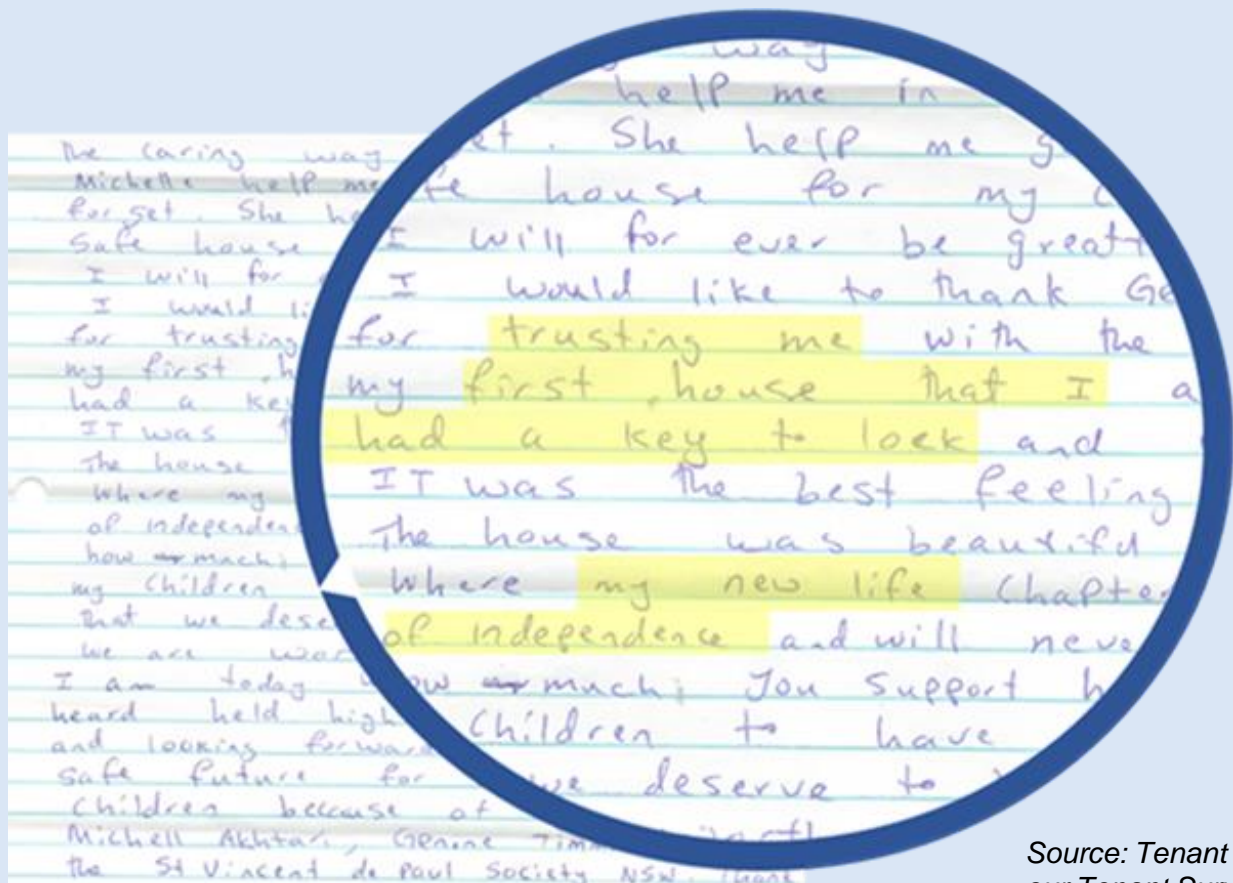 the caring way
Michelle help me
for get. She he
Safe house
I will for
I would li
for trusting
my first h
had a key
IT was
The house
Where my
of independen
how much;
my Children
that we dese
we are wor
I am today
heard held high
and looking forward
safe future for
Children because of
Michell Akhtari, Genine Timm
the St Vincent de Paul Society NSW. Thank
way
help me in
et. She help me g
fe house for my c
I will for ever be greatf
I would like to thank Ge
for trusting me with the
my first house that I a
had a key to lock and
IT was the best feeling
The house was beautiful
Where my new life Chapte
of independence and will neve
ow much; you Support h
Children to have
we deserve to
Source: Tenant
our Tenant Sur